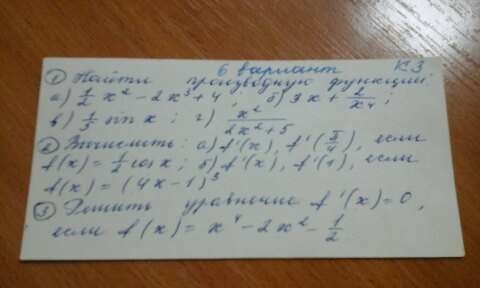 6 вариант К.3
① Найти производную функции:
а) 1/2 x² - 2x³ + 4 ; б) 7x + 2/x⁴ ;
в) 1/3 sin x ; г) x²/(2x² + 5)
② Вычислить: а) f'(x), f'(π/4), если
f(x) = 1/2 cos x ; б) f'(x), f'(1), если
f(x) = (4x - 1)³
③ Решить уравнение f'(x) = 0,
если f(x) = x⁴ - 2x² - 1/2